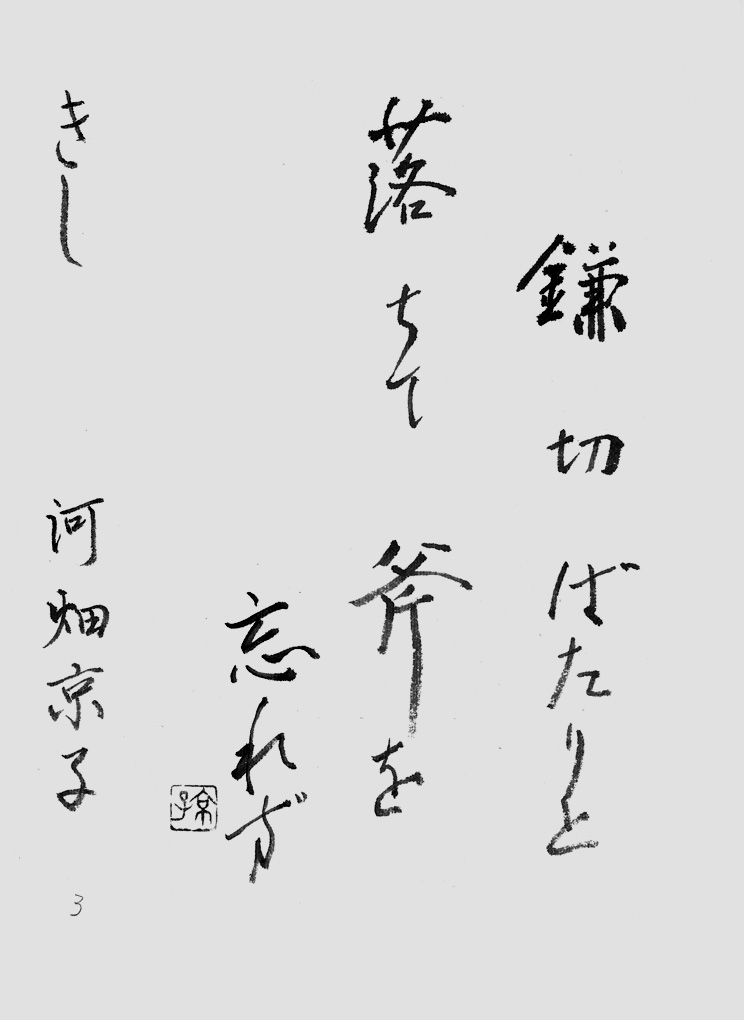 鎌切ばたりと
落ちて斧を
忘れず
きし
河畑京子
京子
3